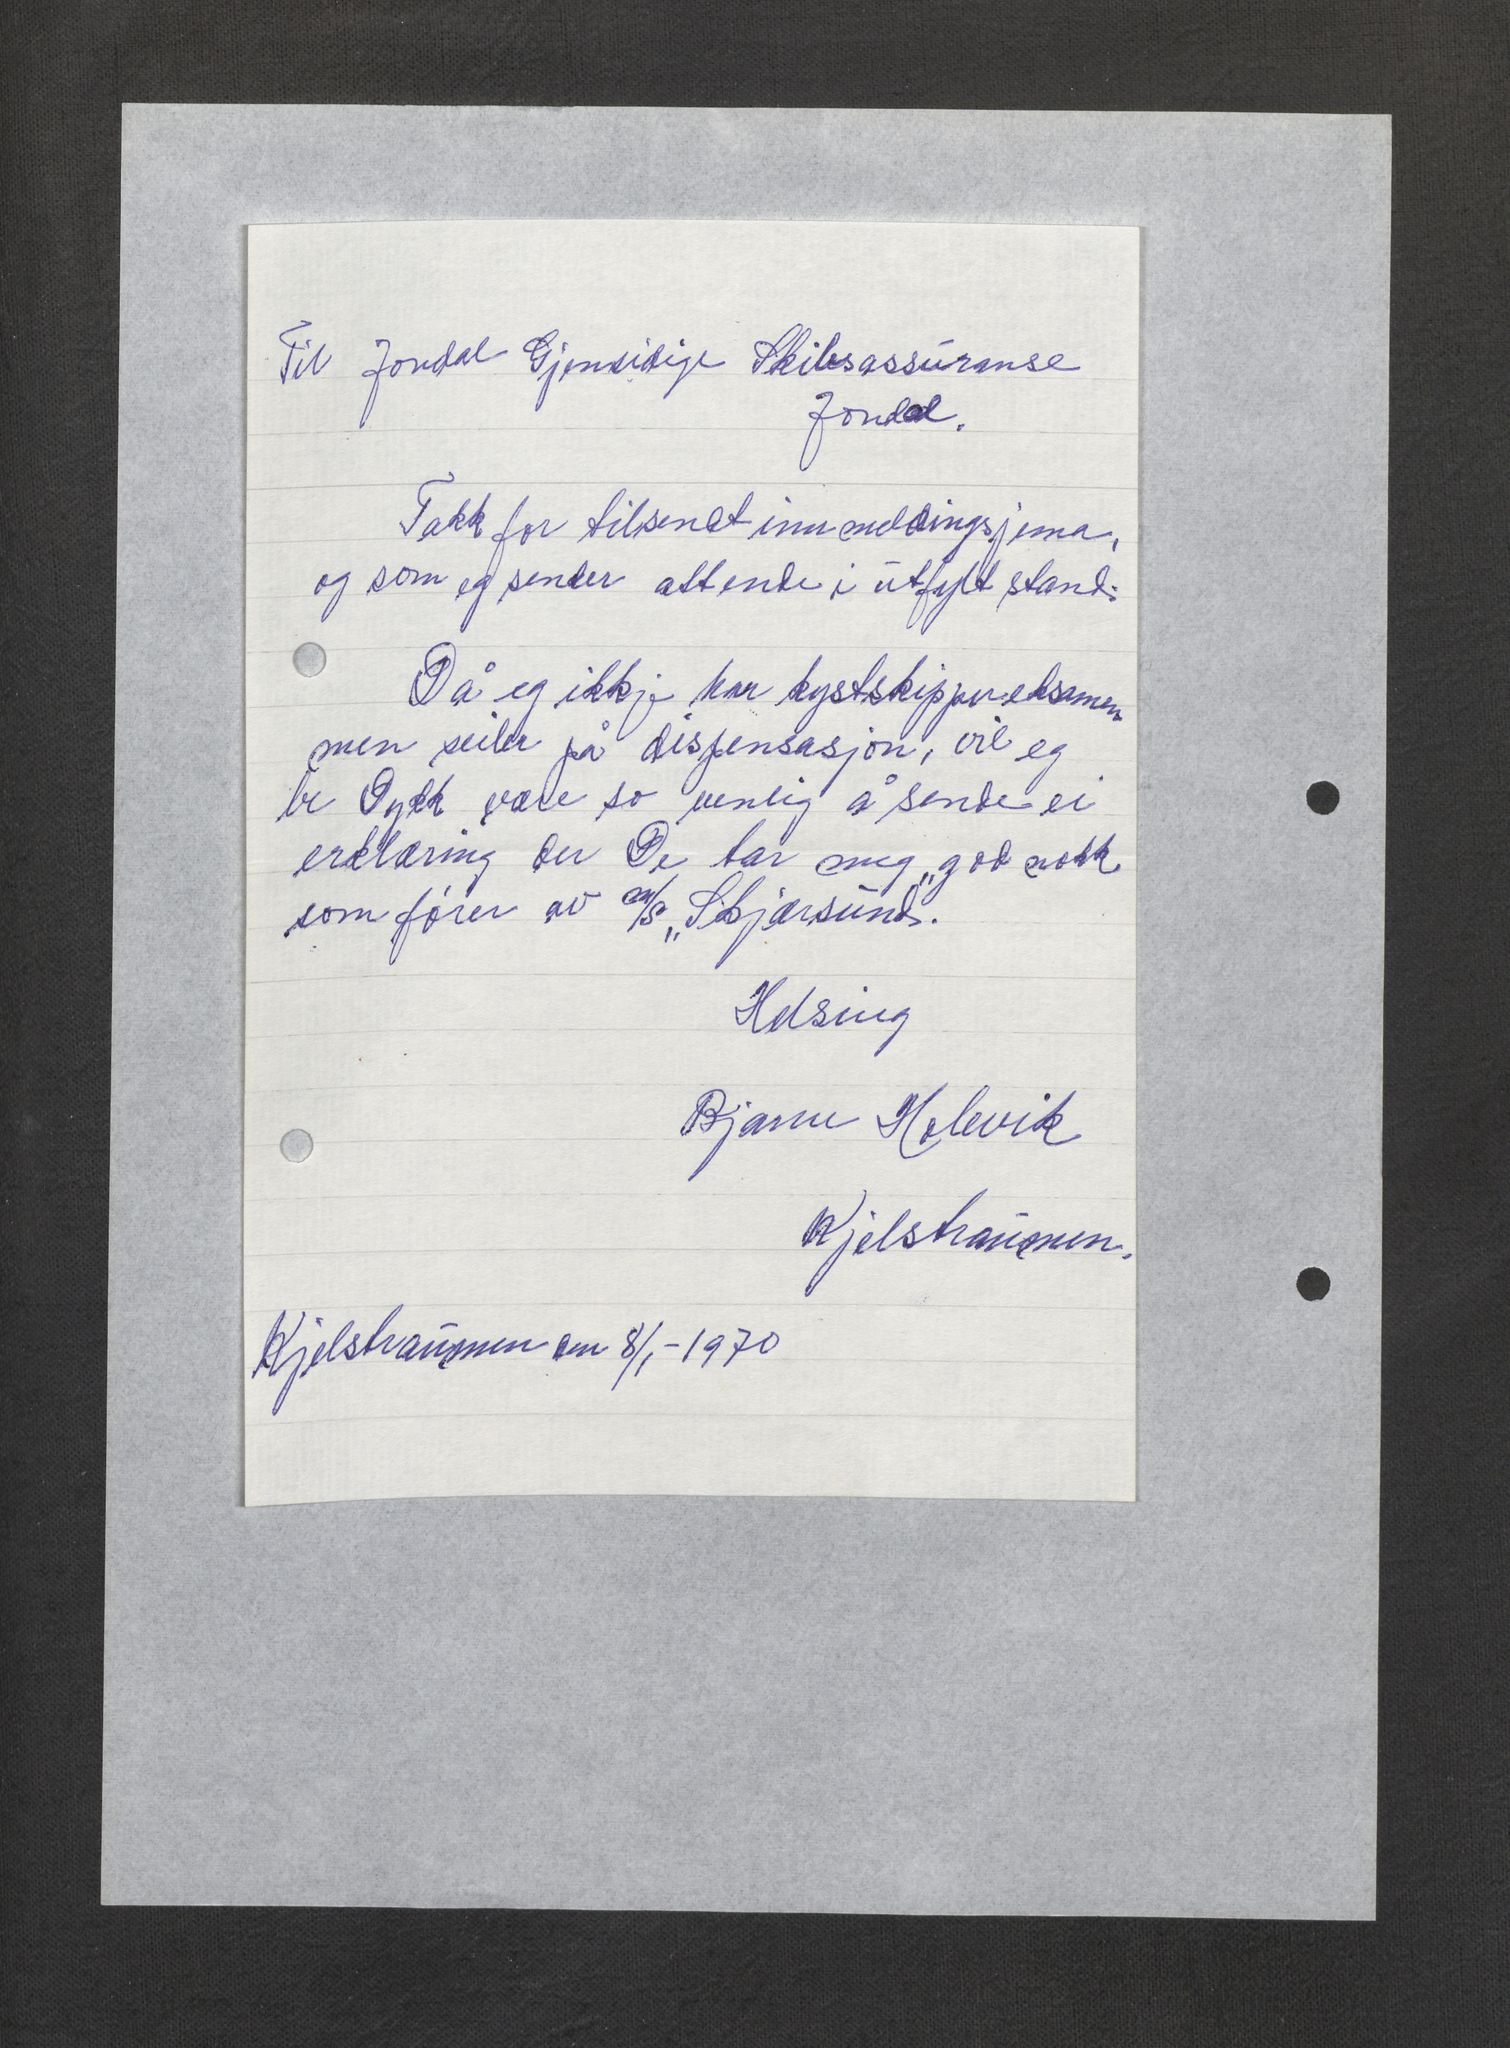 Til Jondal Gjensidige Skibsassuranse
Jondal.
Takk for tilsendt innmeldingsjema,
og som eg sender attende i utfylt stand.
Då eg ikkje har kystskippereksamen
men seiler på dispensasjon, vil eg
be Dykk være so venlig å sende ei
erklæring der De tar meg „god nokk
som fører av m/s „Skjærsund.
Helsing
Bjarne Holevik
Kjelstraumen.
Kjelstraumen den 8/1-1970